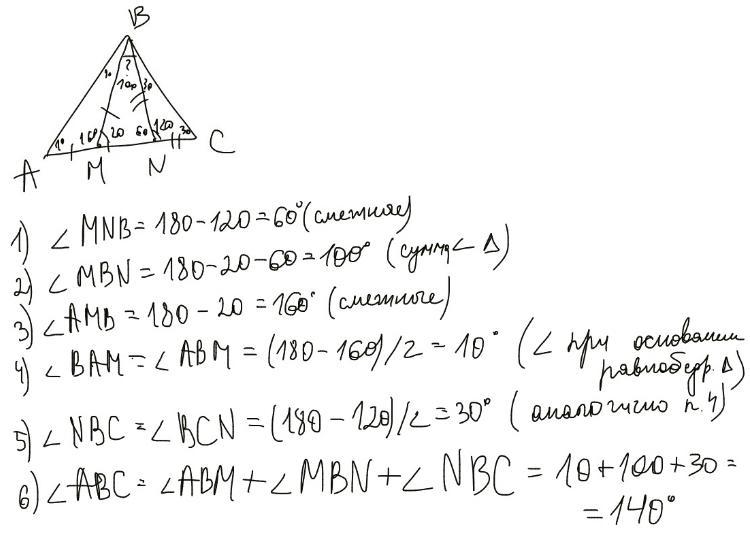 B
?
10 100 30
10 160 20 60 120 30
A M N C
1) ∠ MNB = 180 - 120 = 60° (смежные)
2) ∠ MBN = 180 - 20 - 60 = 100° (сумма ∠ Δ)
3) ∠ AMB = 180 - 20 = 160° (смежные)
4) ∠ BAM = ∠ ABM = (180 - 160)/2 = 10° (∠ при основании
равнобедр. Δ)
5) ∠ NBC = ∠ BCN = (180 - 120)/2 = 30° (аналогично п. 4)
6) ∠ ABC = ∠ ABM + ∠ MBN + ∠ NBC = 10 + 100 + 30 =
= 140°